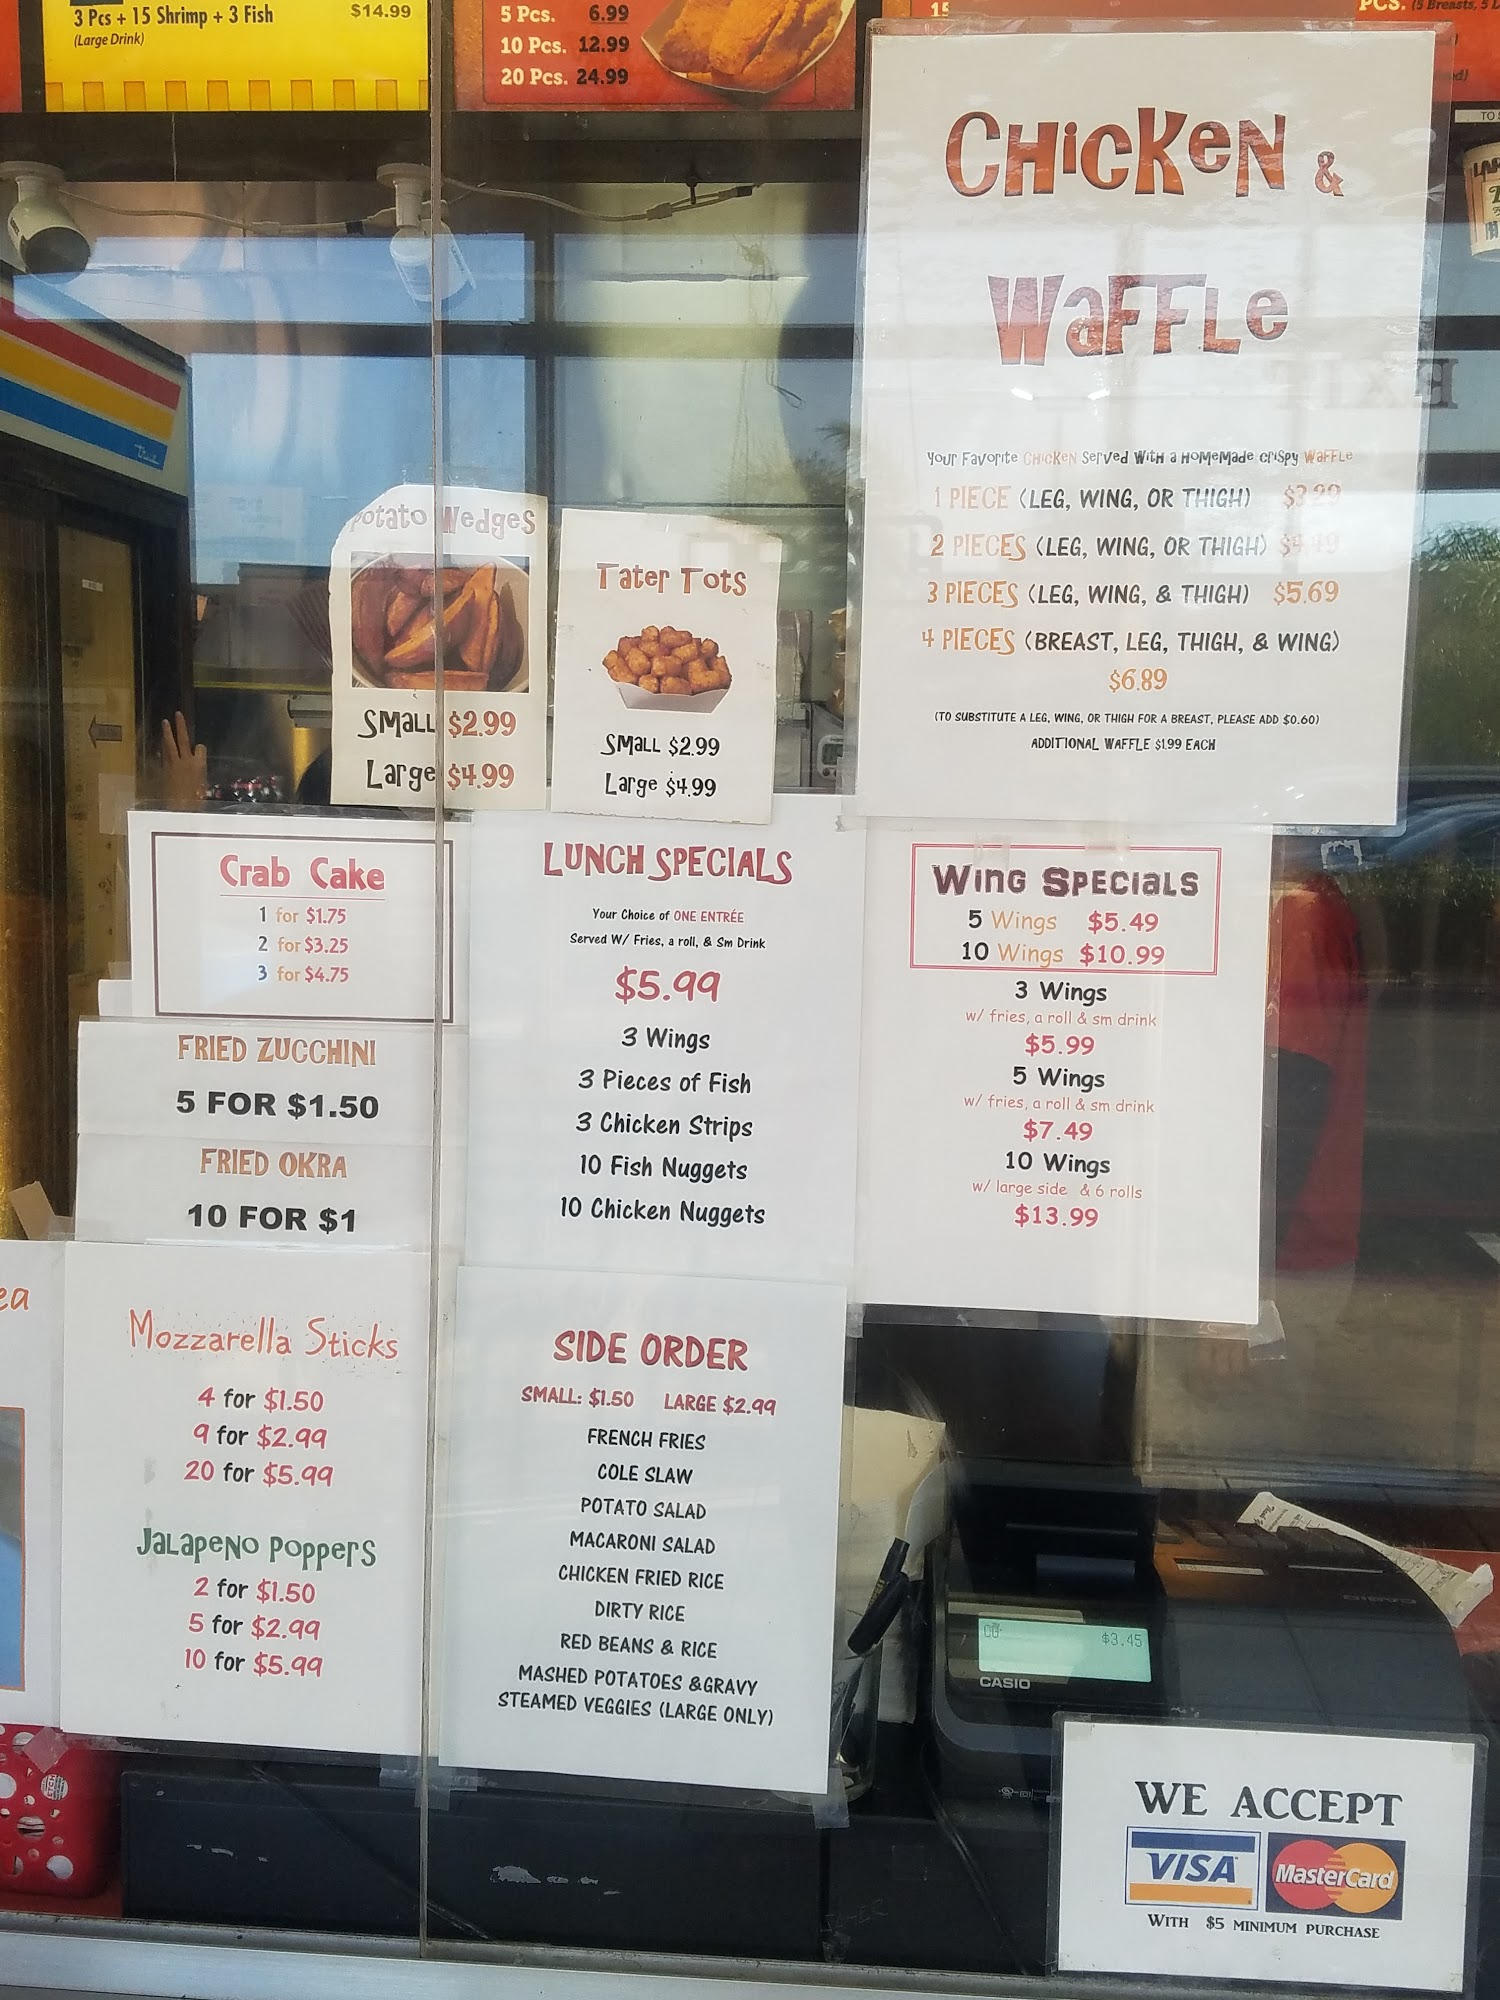 3 Pcs + 15 Shrimp + 3 Fish $14.99
(Large Drink)
5 Pcs. 6.99
10 Pcs. 12.99
20 Pcs. 24.99
15
PCS. (5 Breasts, 5
CHicKeN &
WaFFLe
Your Favorite CHicKeN Served With a HomeMade crispy WaFFLe
1 PIECE (LEG, WING, OR THIGH) $3.29
2 PIECES (LEG, WING, OR THIGH) $4.49
3 PIECES (LEG, WING, & THIGH) $5.69
4 PIECES (BREAST, LEG, THIGH, & WING)
$6.89
(TO SUBSTITUTE A LEG, WING, OR THIGH FOR A BREAST, PLEASE ADD $0.60)
ADDITIONAL WAFFLE $1.99 EACH
Potato Wedges
Small $2.99
Large $4.99
Tater Tots
Small $2.99
Large $4.99
Crab Cake
1 for $1.75
2 for $3.25
3 for $4.75
FRIED ZUCCHINI
5 FOR $1.50
FRIED OKRA
10 FOR $1
Mozzarella Sticks
4 for $1.50
9 for $2.99
20 for $5.99
Jalapeno Poppers
2 for $1.50
5 for $2.99
10 for $5.99
LUNCH SPECIALS
Your Choice of ONE ENTRÉE
Served W/ Fries, a roll, & Sm Drink
$5.99
3 Wings
3 Pieces of Fish
3 Chicken Strips
10 Fish Nuggets
10 Chicken Nuggets
SIDE ORDER
SMALL: $1.50 LARGE $2.99
FRENCH FRIES
COLE SLAW
POTATO SALAD
MACARONI SALAD
CHICKEN FRIED RICE
DIRTY RICE
RED BEANS & RICE
MASHED POTATOES &GRAVY
STEAMED VEGGIES (LARGE ONLY)
Wing Specials
5 Wings $5.49
10 Wings $10.99
3 Wings
w/ fries, a roll & sm drink
$5.99
5 Wings
w/ fries, a roll & sm drink
$7.49
10 Wings
w/ large side & 6 rolls
$13.99
$3.45
CASIO
WE ACCEPT
VISA MasterCard
WITH $5 MINIMUM PURCHASE